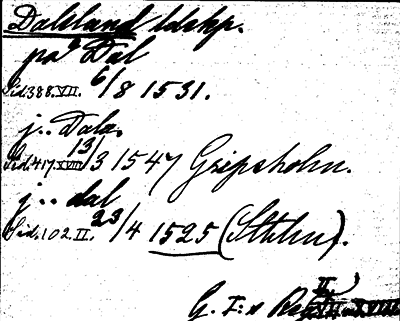 Dalsland ldskp.
på Dal
Sid. 388. VII. 6/8 1531.
j.. Dala.
Sid. 417. XVIII 13/3 1547 Gripsholm.
j.. dal
Sid. 102. II. 23/4 1525 (Sthlm).
G. I:s Reg. II,